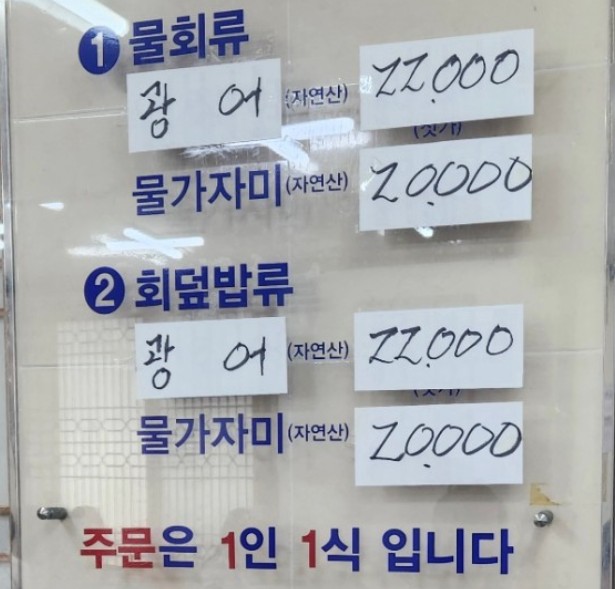 1 물회류
광어 (자연산) 22.000
(싯가)
물가자미 (자연산) 20.000
2 회덮밥류
광어 (자연산) 22.000
(싯가)
물가자미 (자연산) 20.000
주문은 1인 1식 입니다